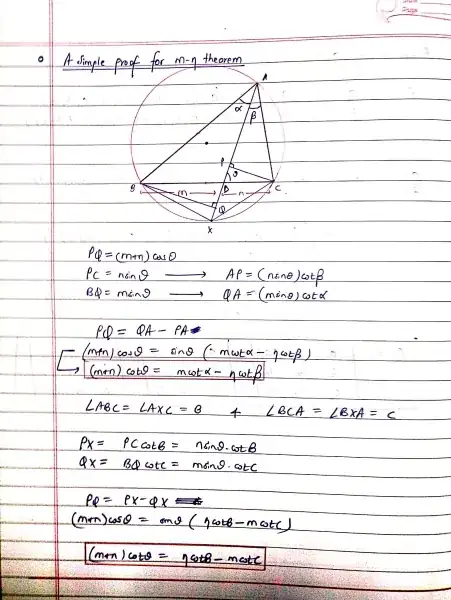 A simple proof for m-η theorem
A
α
β
P
θ
B
m
D
n
C
Q
X
PQ = (m+n) cosθ
PC = nsinθ → AP = (nsinθ) cotβ
BQ = msinθ → QA = (msinθ) cotα
PQ = QA - PA
(m+n) cosθ = sinθ ( mcotα - ηcotβ)
(m+n) cotθ = mcotα - ηcotβ
∠ABC = ∠AXC = B & ∠BCA = ∠BXA = C
PX = PC cotB = nsinθ·cotB
QX = BQ cotC = msinθ·cotC
PQ = PX - QX
(m+n)cosθ = sinθ (ηcotB - mcotC)
(m+n) cotθ = ηcotB - mcotC